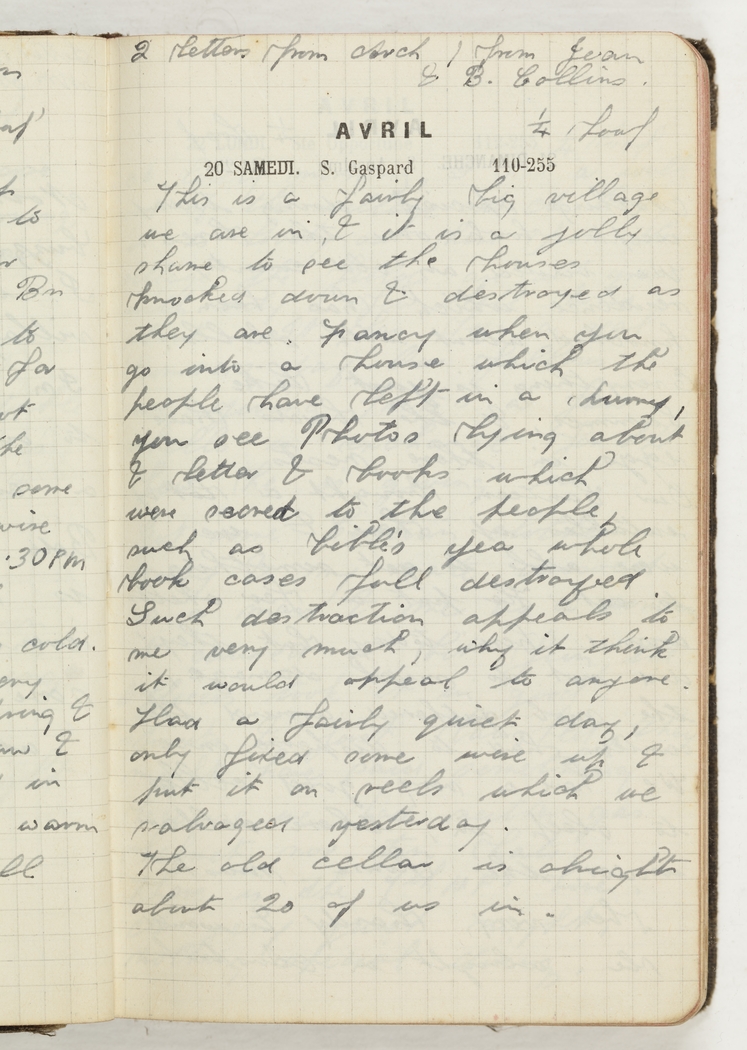 2 letters from Arch 1 from Jean
& B. Collins.
AVRIL ¼ loaf
20 SAMEDI. S. Gaspard 110-255
This is a fairly big village
we are in, & it is a jolly
shame to see the houses
knocked down & destroyed as
they are. Fancy when you
go into a house which the
people have left in a hurry,
you see Photos lying about
& letter & books which
were secred to the people,
such as bible's yea whole
book cases full destroyed
Such destraction appeals to
me very much, why it think
it would appeal to anyone.
Had a fairly quiet day,
only fixed some wire up &
put it on reels which we
salvaged yesterday.
The old cellar is alright
about 20 of us in.
to
Bn
to
some
wire
.30PM
cold.
&
&
in
warm